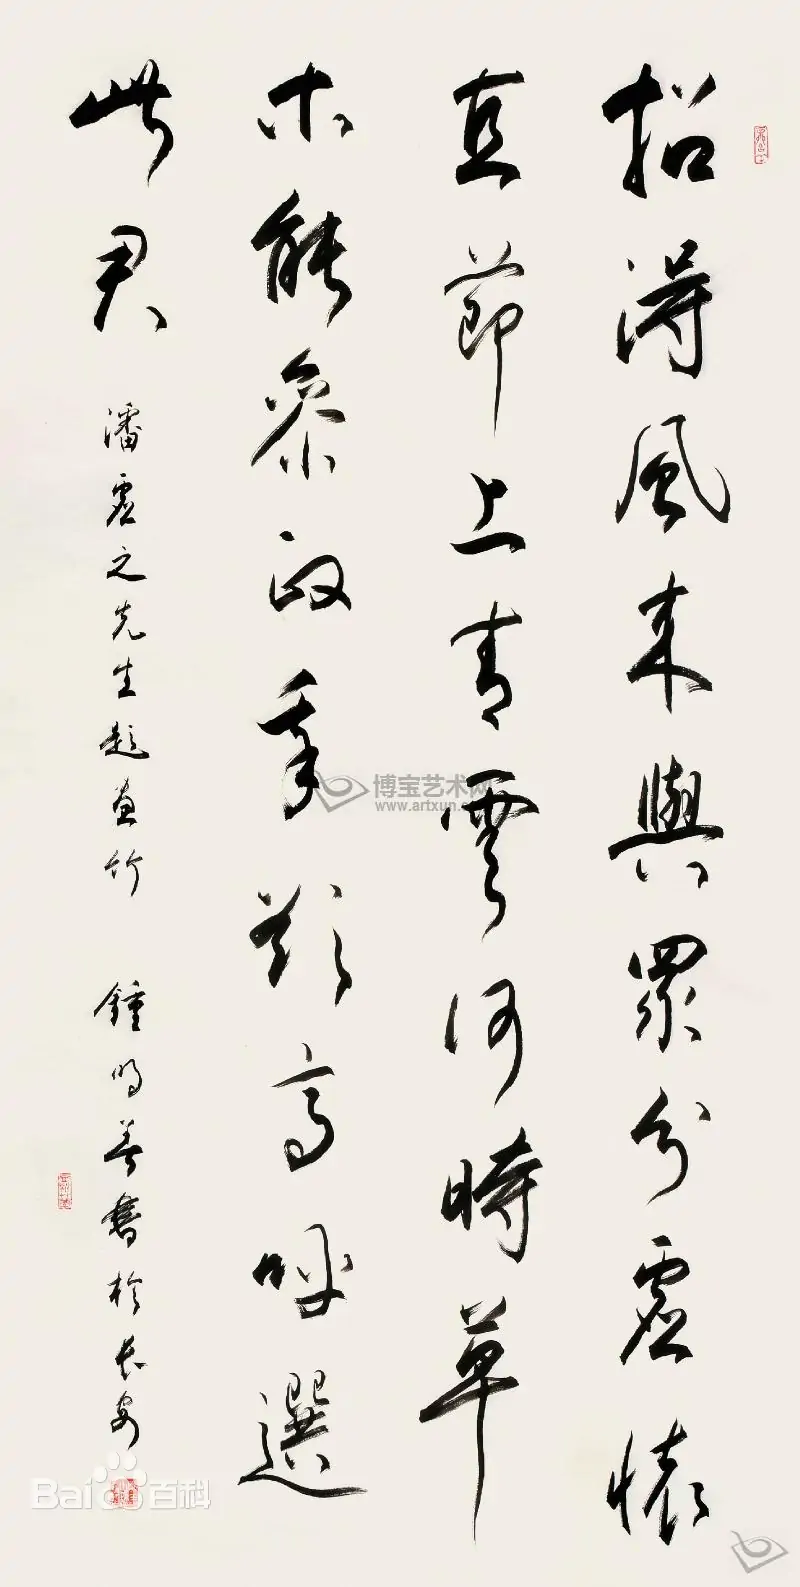 招得風来與眾分虛懷
直節上青雲何時草
木能參政舉欵高呼選
此君
潘虛之先生題畫竹 鍾明善書於長安
博宝艺术网
www.artxun.c
Bai百科